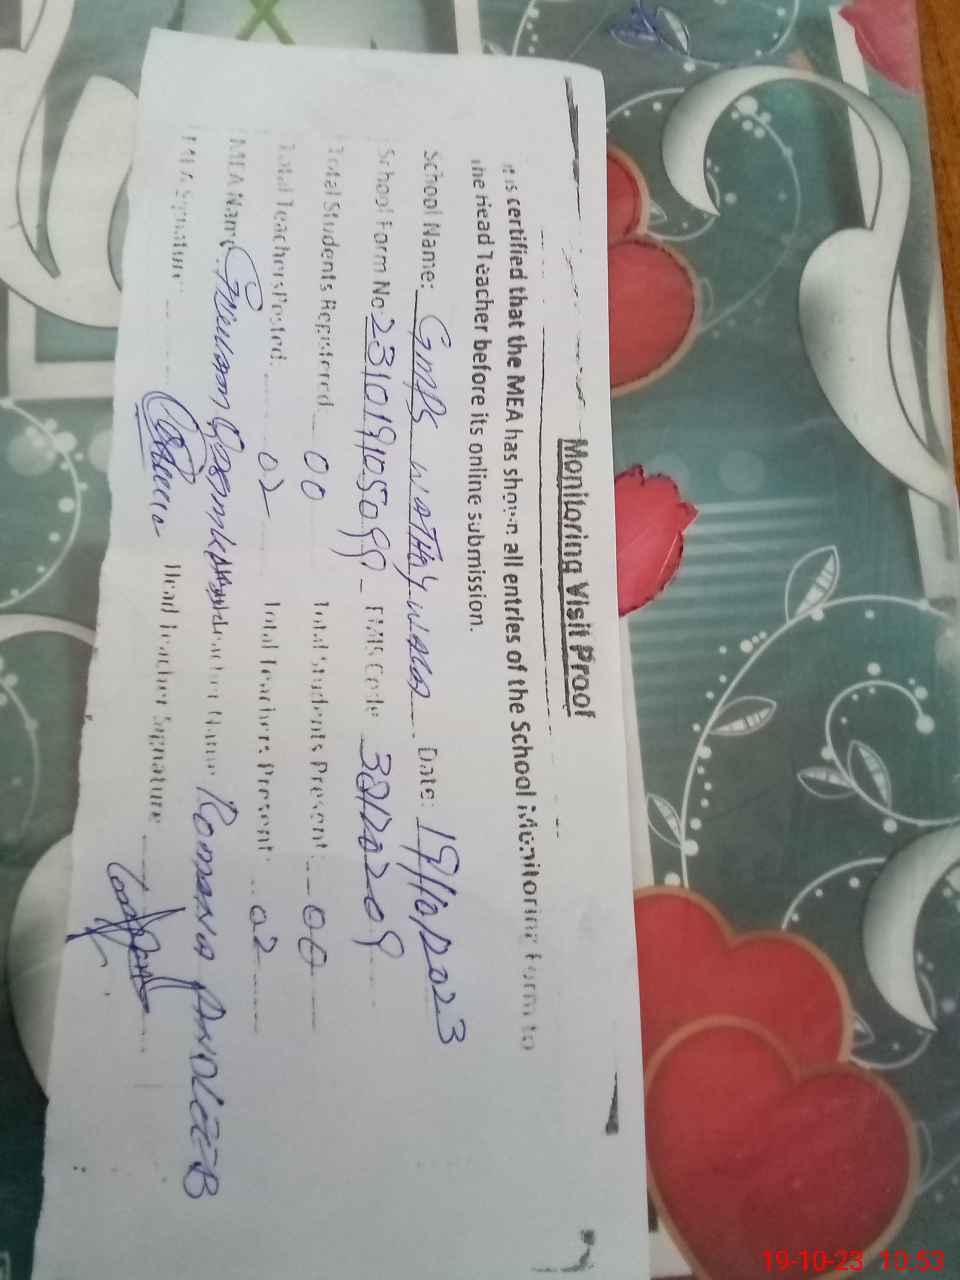 Monitoring Visit Proof
It is certified that the MEA has shown all entries of the School Monitoring Form to
the Head Teacher before its online submission.
School Name: GMPS WATHAY WALA Date: 19/10/2023
School Form No: 231019105099 EMIS Code 38120209
Total Students Registered 00 Total Students Present: 00
Total Teachers Posted: 02 Total Teachers Present: 02
MEA Name Ghulam Head Teacher Name Romana ANDLEEB
MEA Signature: Head Teacher Signature
19-10-23 10:53